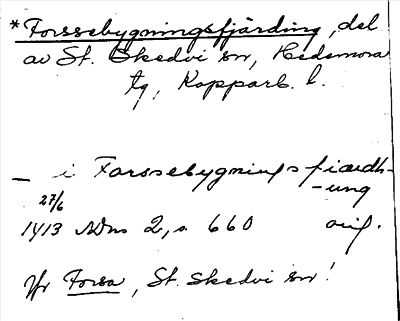 *Forssebygningsfjärding, del
av St. Skedvi sn, Hedemora
tg, Kopparb. l.
– i Forssebygnings fiærdh-
-ung
27/6
1413 SDns 2, s 660 orig.
Jfr Forsa, St. Skedvi sn!